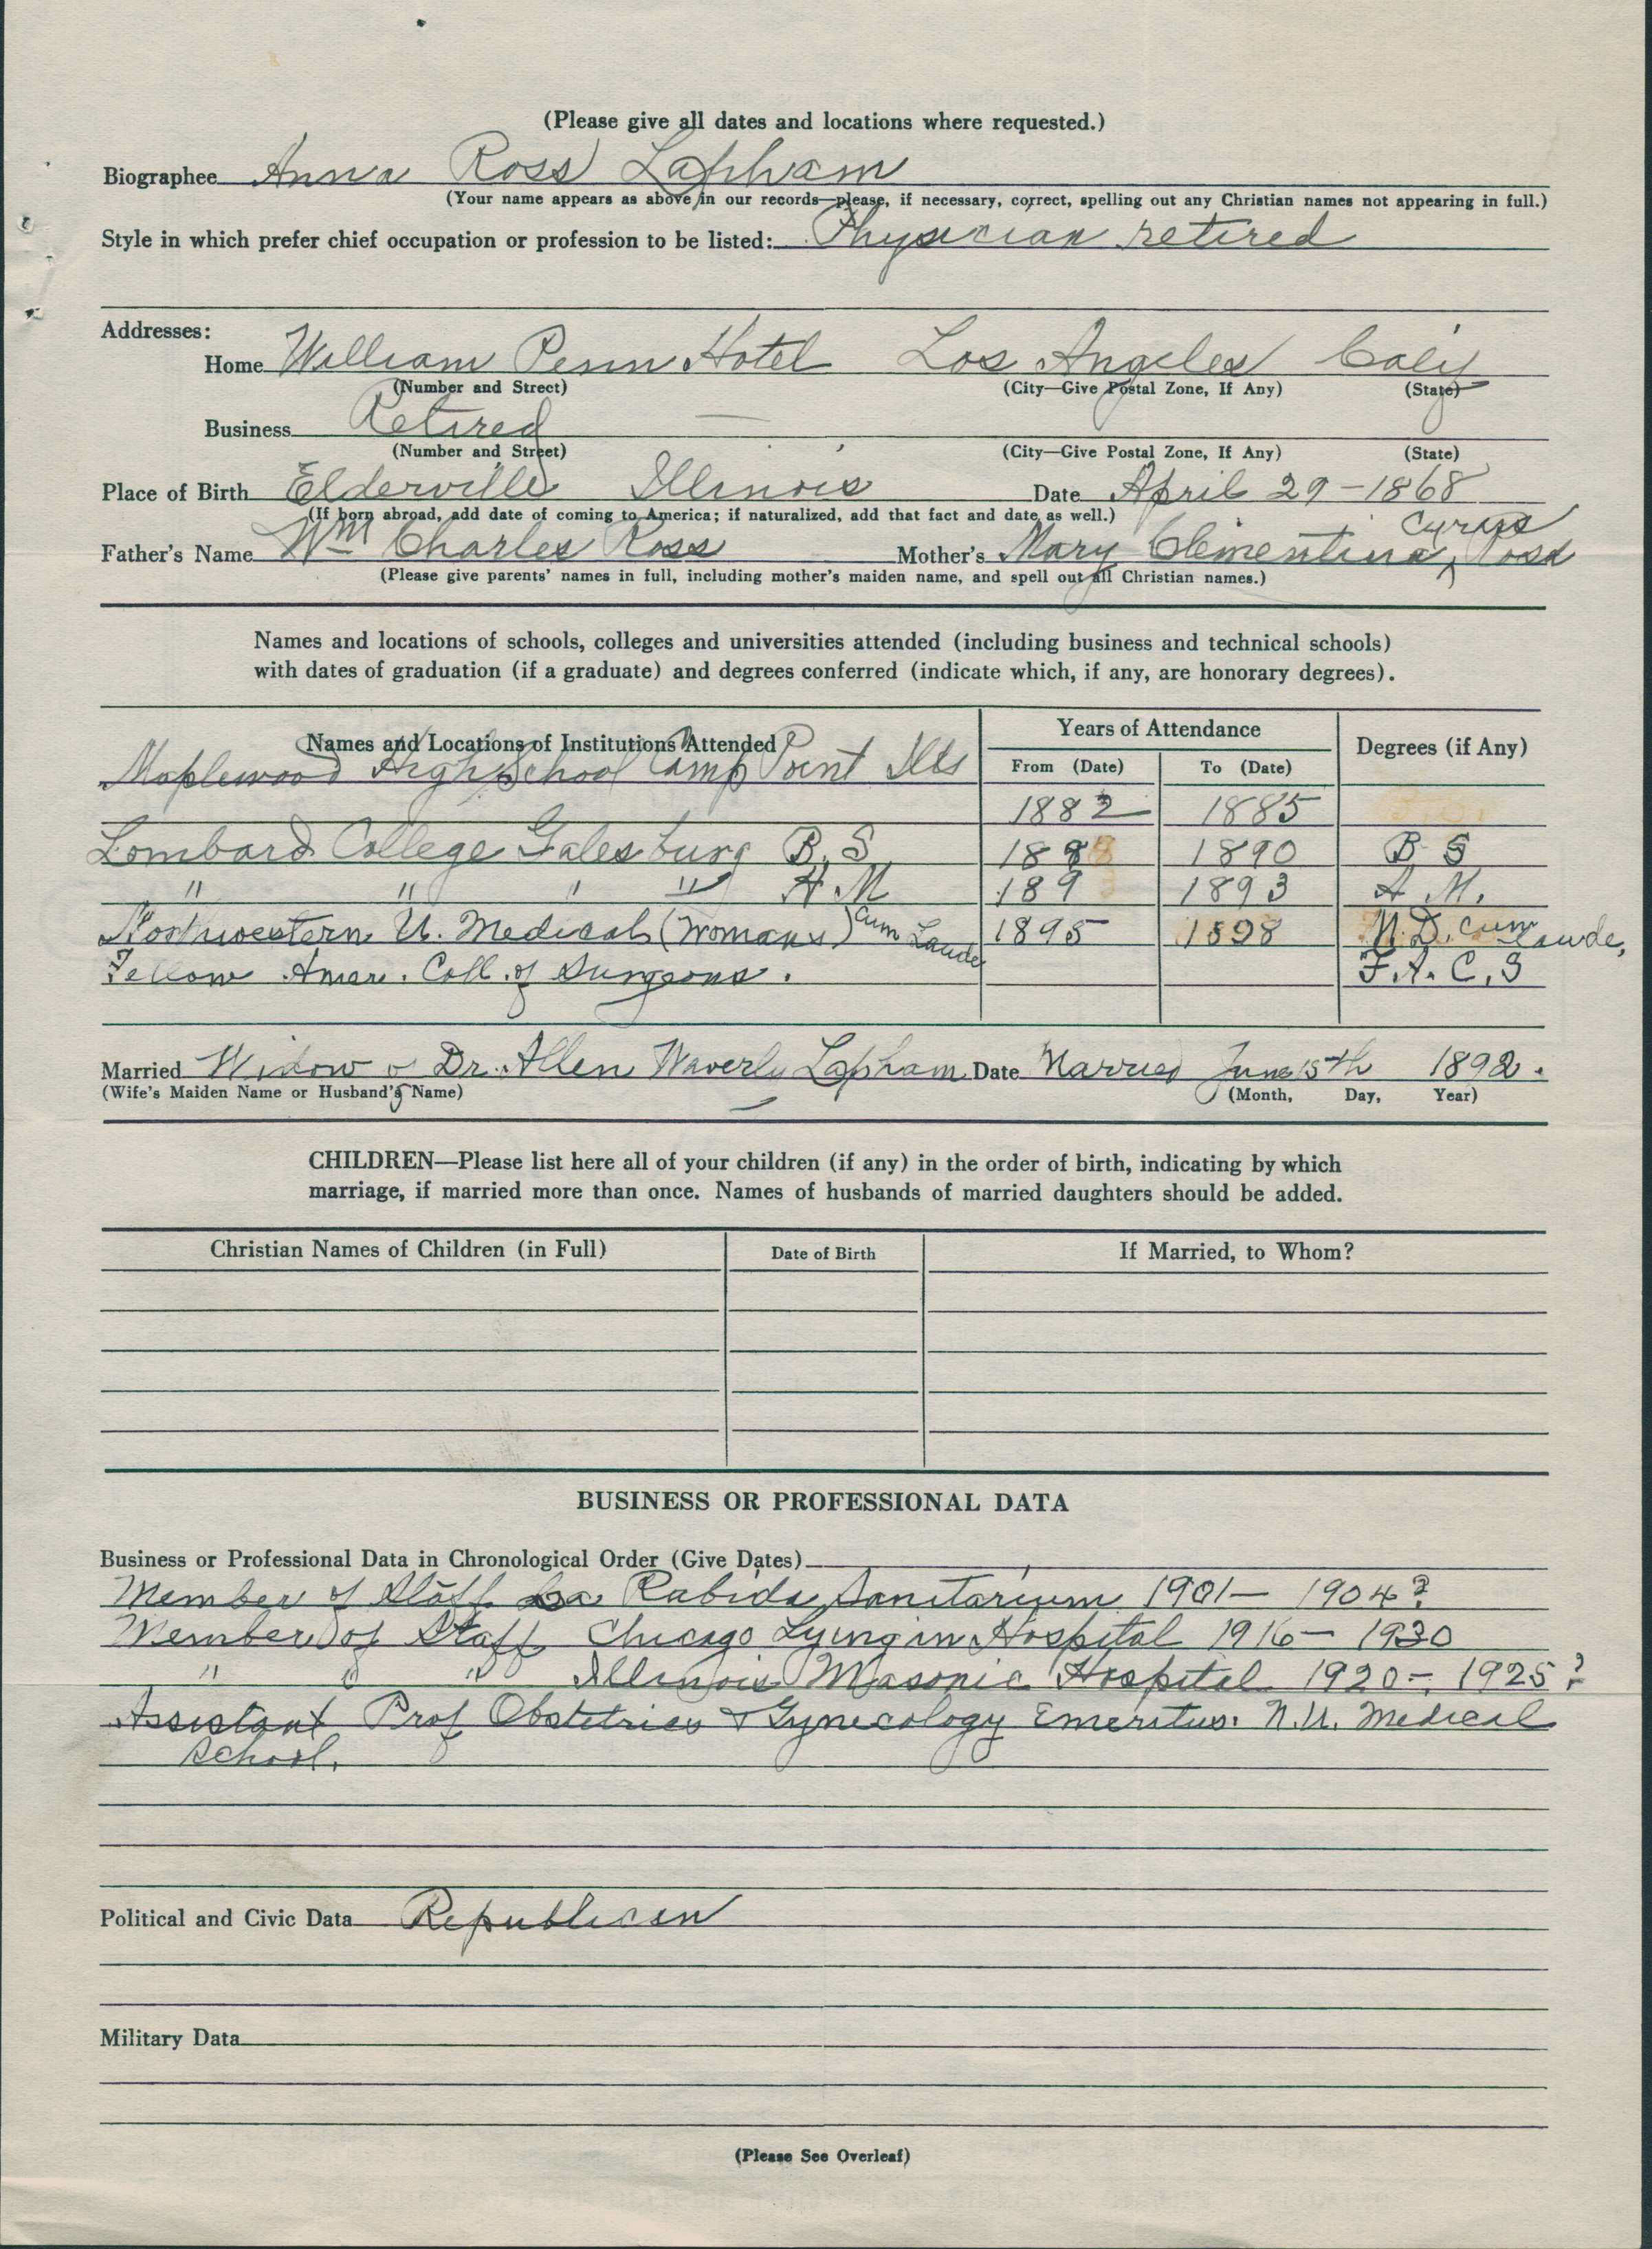 (Please give all dates and locations where requested.)
Biographee Anna Ross Lapham
(Your name appears as above in our records—please, if necessary, correct, spelling out any Christian names not appearing in full.)
Style in which prefer chief occupation or profession to be listed: Physician retired
Addresses:
Home William Penn Hotel Los Angeles Calif
(Number and Street) (City—Give Postal Zone, If Any) (State)
Business Retired —
(Number and Street) (City—Give Postal Zone, If Any) (State)
Place of Birth Elderville Illinois Date April 29-1868
(If born abroad, add date of coming to America; if naturalized, add that fact and date as well.)
Father's Name Wm Charles Ross Mother's Mary Clementina Ross
(Please give parents' names in full, including mother's maiden name, and spell out all Christian names.)
Names and locations of schools, colleges and universities attended (including business and technical schools)
with dates of graduation (if a graduate) and degrees conferred (indicate which, if any, are honorary degrees).
Names and Locations of Institutions Attended Years of Attendance Degrees (if Any)
From (Date) To (Date)
Maplewood High School Camp Point Ills
1882 1885
Lombard College Galesburg B.S. 1888 1890 B S
" " " " A.M 189 1893 A M.
Northwestern U. Medical (Womans) Cum Laude 1895 1898 M.D. Cum Laude,
Fellow Amer. Coll. of Surgeons. F.A.C.S
Married Widow of Dr. Allen Waverly Lapham Date Married June 15th 1892.
(Wife's Maiden Name or Husband's Name) (Month, Day, Year)
CHILDREN—Please list here all of your children (if any) in the order of birth, indicating by which
marriage, if married more than once. Names of husbands of married daughters should be added.
Christian Names of Children (in Full) Date of Birth If Married, to Whom?
BUSINESS OR PROFESSIONAL DATA
Business or Professional Data in Chronological Order (Give Dates)
Member of Staff La Rabida Sanitarium 1901- 1904?
Member of Staff Chicago Lying in Hospital 1916- 1930
" " " Illinois Masonic Hospital 1920- 1925?
Assistant Prof Obstetrics & Gynecology Emeritus. N.U. Medical
School.
Political and Civic Data Republican
Military Data
(Please See Overleaf)